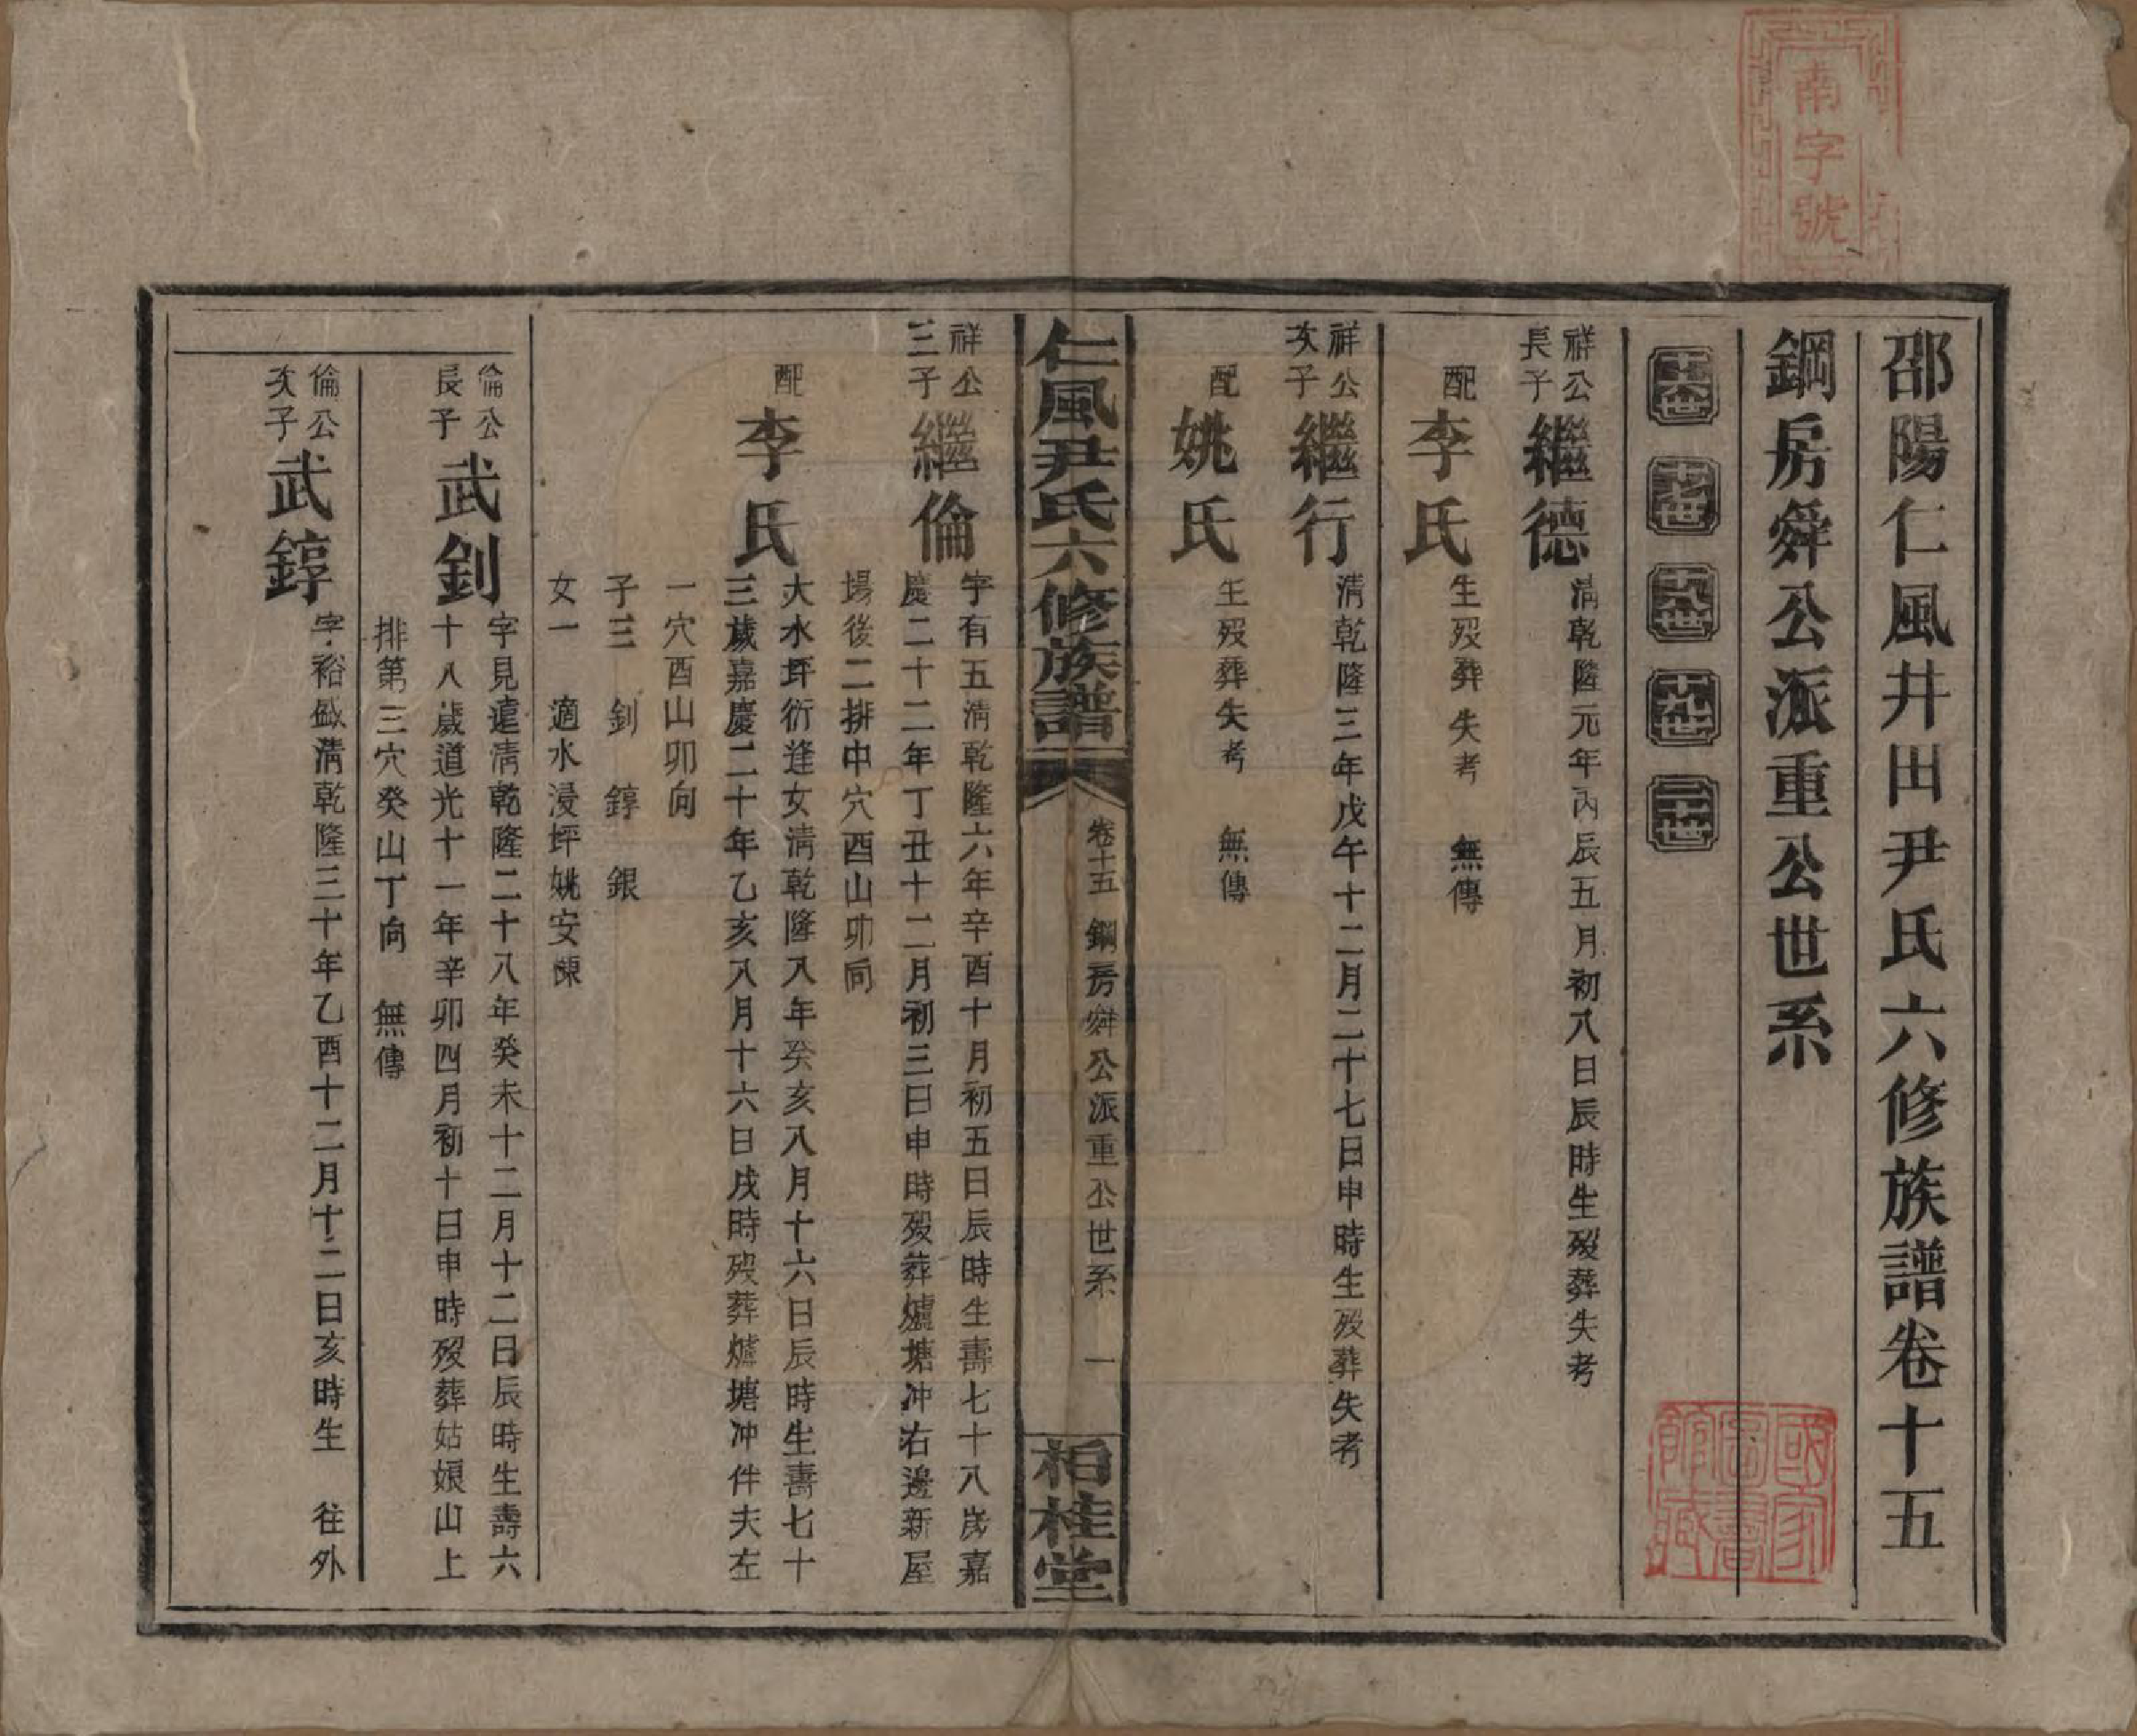 南字號
邵陽仁風井田尹氏六修族譜卷十五
鋼房舜公派重公世系
十六世 十七世 十八世 十九世 二十世
祥公長子 繼德 清乾隆元年丙辰五月初八日辰時生歿葬失考
配 李氏 生歿葬失考 無傳
祥公次子 繼行 清乾隆三年戊午十二月二十七日申時生歿葬失考
配 姚氏 生歿葬失考 無傳
仁風尹氏六修族譜 卷十五 鋼房舜公派重公世系 一 柏桂堂
祥公三子 繼倫 字有五清乾隆六年辛酉十月初五日辰時生壽七十八歲嘉
慶二十二年丁丑十二月初三日申時歿葬爐塘冲右邊新屋
場後二排中穴酉山卯向
配 李氏 大水坪衍逢女清乾隆八年癸亥八月十六日辰時生壽七十
三歲嘉慶二十年乙亥八月十六日戌時歿葬爐塘冲伴夫左
一穴酉山卯向
子三 釗 錞 銀
女一 適水浸坪姚安陳
倫公長子 武釗 字見遠清乾隆二十八年癸未十二月十二日辰時生壽六
十八歲道光十一年辛卯四月初十日申時歿葬姑娘山上
排第三穴癸山丁向 無傳
倫公次子 武錞 字裕盛清乾隆三十年乙酉十二月十二日亥時生 往外
國家圖書館藏